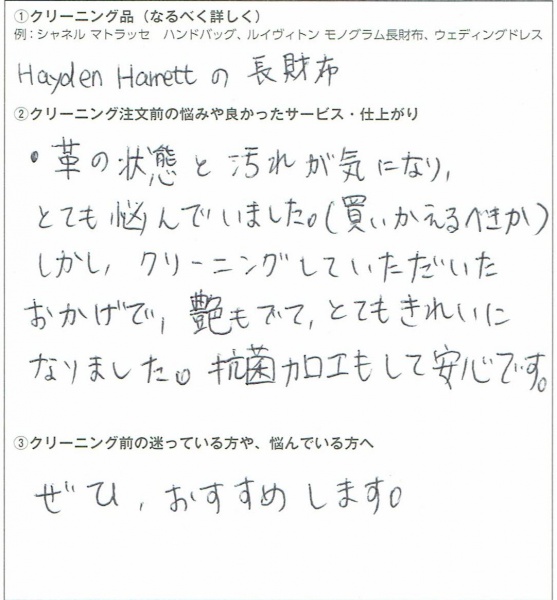 ①クリーニング品（なるべく詳しく）
例：シャネル マトラッセ　ハンドバッグ、ルイヴィトン モノグラム長財布、ウェディングドレス
Hayden Harrettの 長財布
②クリーニング注文前の悩みや良かったサービス・仕上がり
・革の状態と汚れが気になり、
とても悩んでいました。(買いかえるべきか)
しかし、クリーニングしていただいた
おかげで、艶もでて、とてもきれいに
なりました。抗菌加工もして安心です。
③クリーニング前の迷っている方や、悩んでいる方へ
ぜひ、おすすめします。